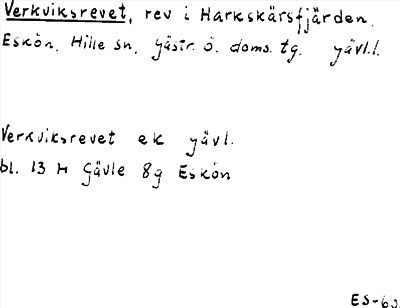 Verkviksrevet, rev i Harkskärsfjärden,
Eskön, Hille sn, Gästr. ö. doms. tg. Gävl.l.
Verkviksrevet ek Gävl.
bl. 13 H Gävle 8g Eskön